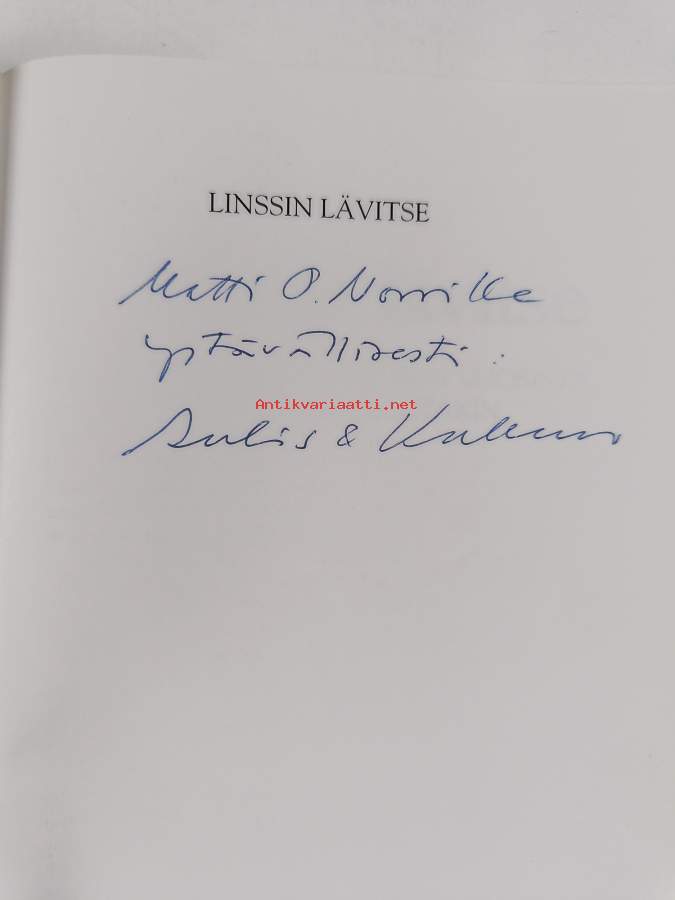 LINSSIN LÄVITSE
Matti O. Norrille
ystävällisesti
Antikvariaatti.net
Aulis &